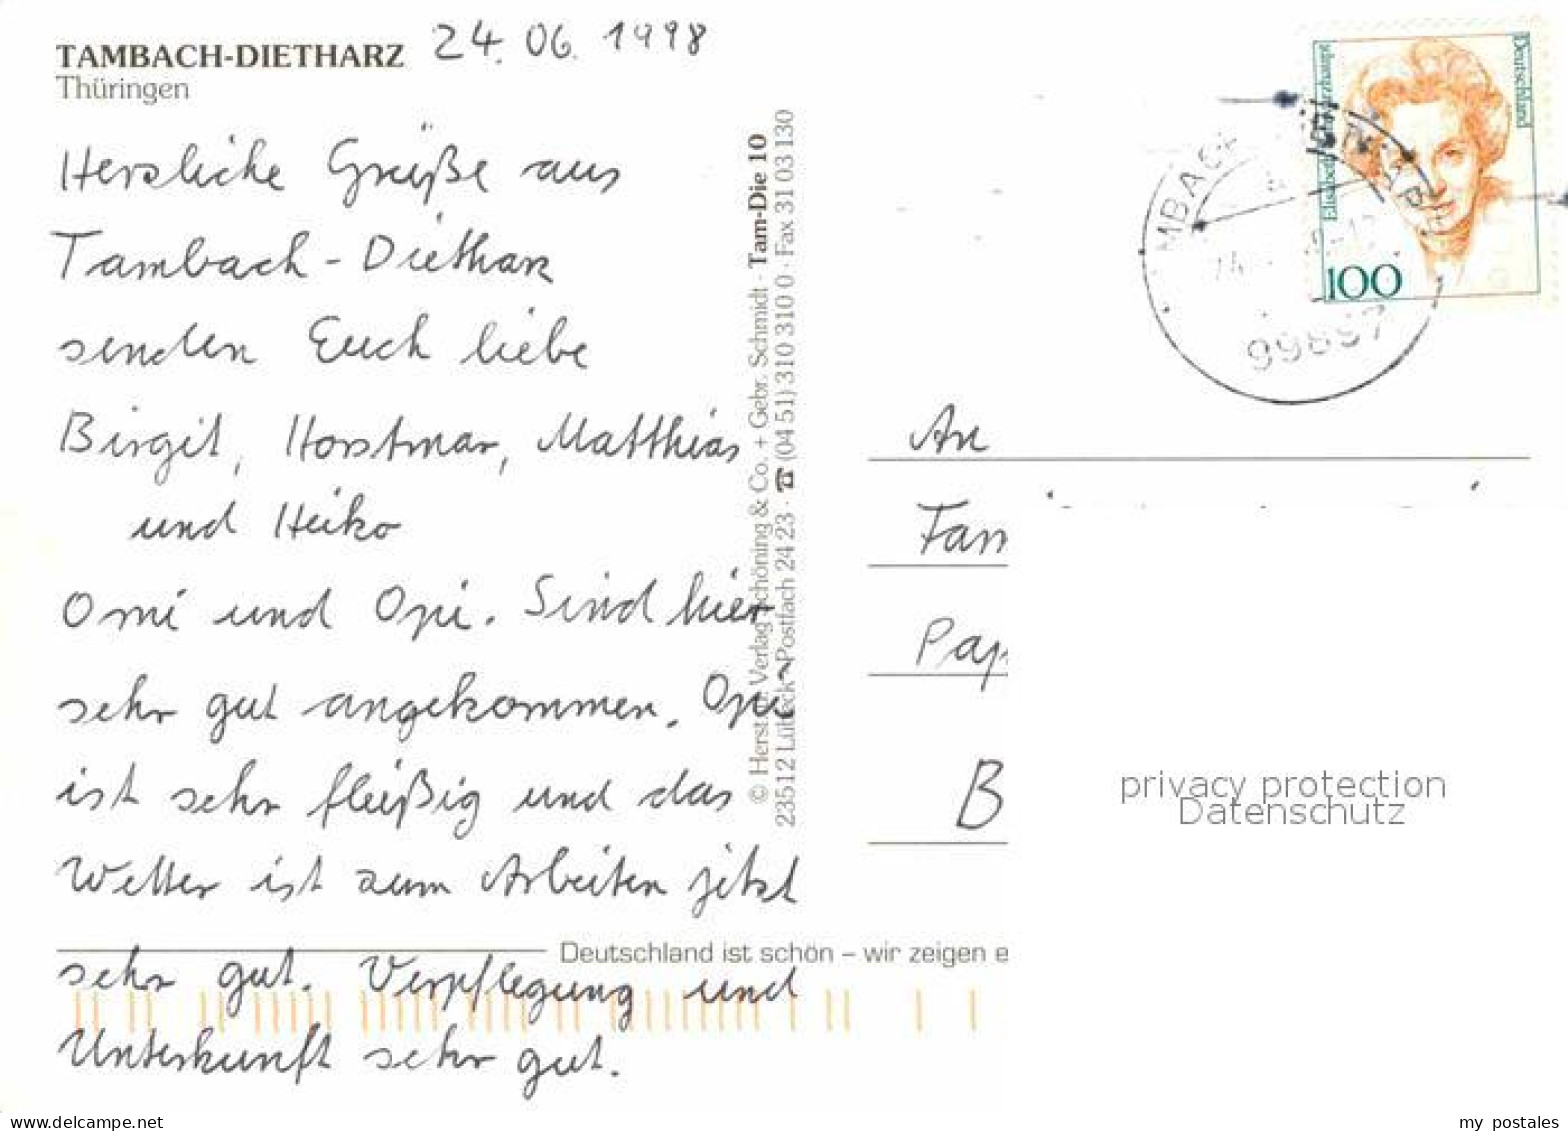 TAMBACH-DIETHARZ 24.06.1998
Thüringen
Herzliche Grüße aus
Tambach-Dietharz
senden Euch liebe
Birgit, Horstmar, Matthias
und Heiko
Omi und Opi. Sind hier
sehr gut angekommen. Opi
ist sehr fleißig und das
Wetter ist zum Arbeiten jetzt
sehr gut. Verpflegung und
Unterkunft sehr gut.
Deutschland ist schön – wir zeigen e
© Herst. u. Verlag Schöning & Co. + Gebr. Schmidt · Tam-Die 10
23512 Lübeck · Postfach 24 23 · ☎ (04 51) 310 310 0 · Fax 31 03 130
Deutschland
Elisabeth Schwarzhaupt
100
MBACH-DIETHARZ
99897
An
Fam
Pap
B
privacy protection
Datenschutz
delcampe.net
my_postales